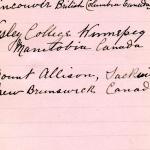 ancouver British Columbia Canada
sley College Winnepeg
Manitobia Canada
ount Allison, Sackvi
ew Brunswick Canad